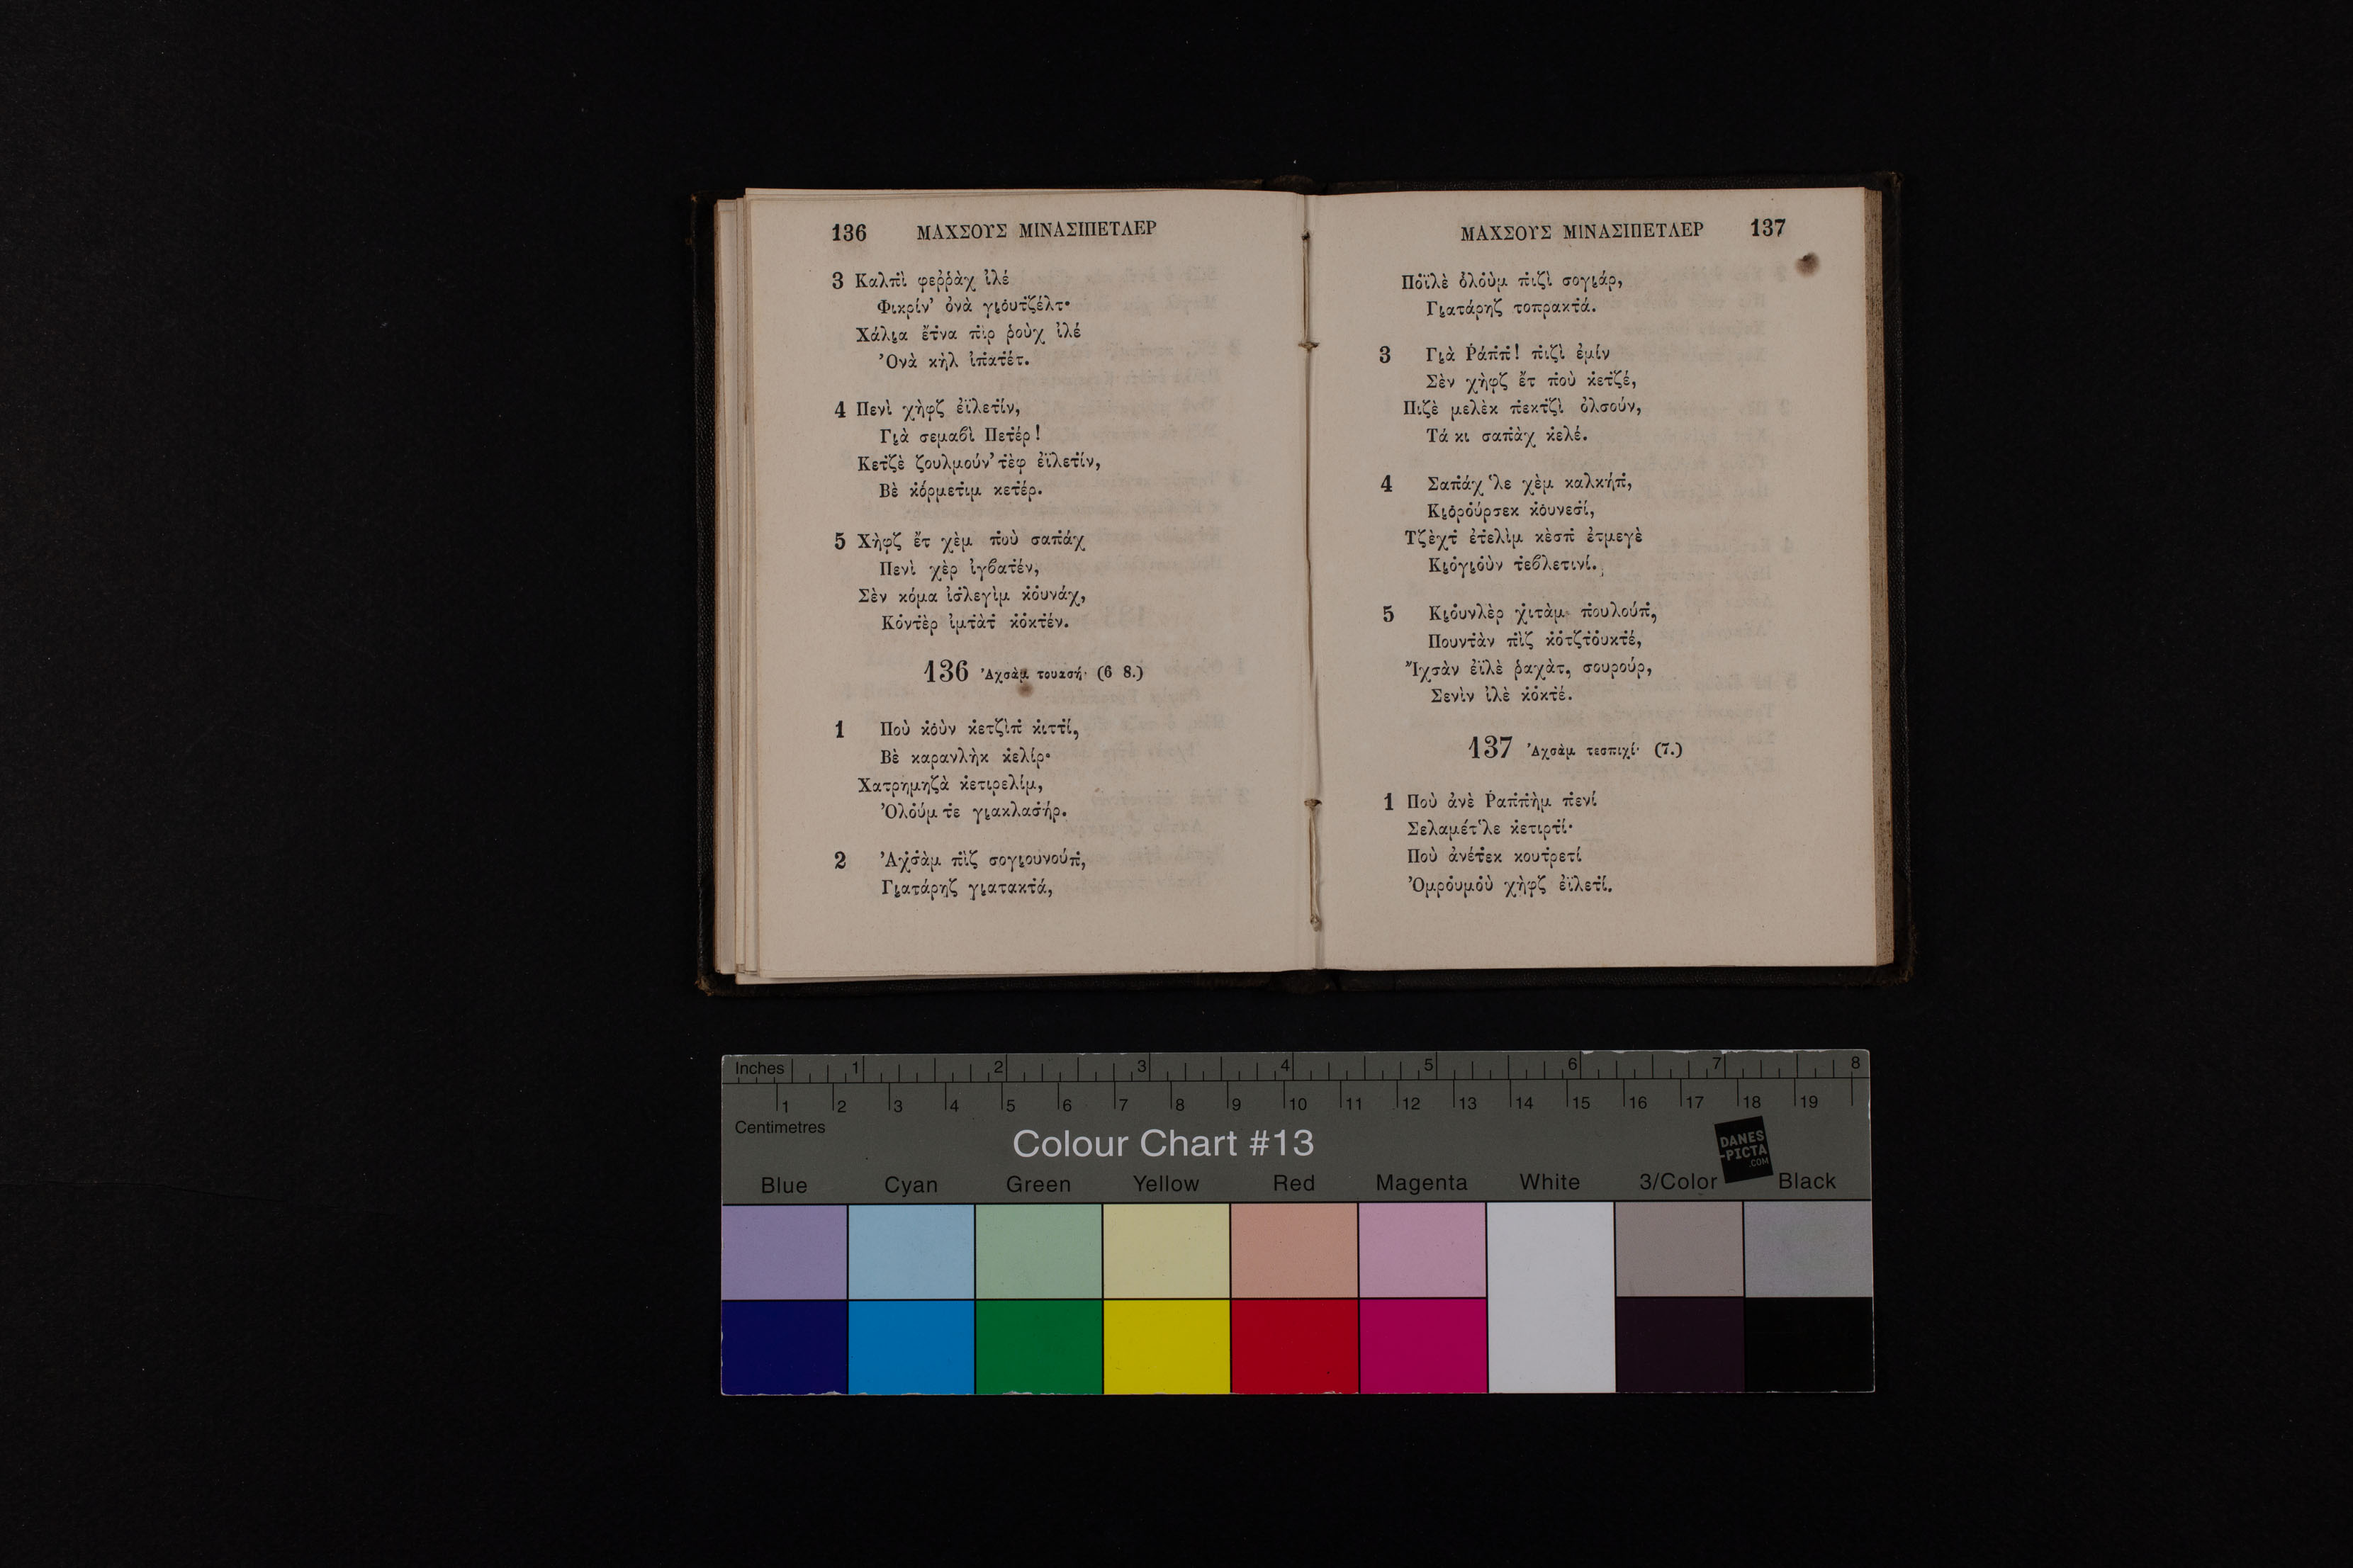 136 ΜΑΧΣΟΥΣ ΜΙΝΑΣΙΠΕΤΛΕΡ
3 Καλπὶ φεῤῥὰχ ἰλέ
Φικρίν' ὀνὰ γι̥ὀυτζέλτ·
Χάλι̥α ἔτ̇να π̇ὶρ ῥοὺχ ἰλέ
Ὀνὰ κὴλ ἰπ̇ατ̇έτ.
4 Πενὶ χὴφζ ἐϊλετ̇ίν,
Γι̥ὰ σεμαβὶ Πετ̇έρ!
Κετζὲ ζουλμούν' τ̇ὲφ ἐϊλετ̇ίν,
Βὲ κ̇ὀρμετ̇ιμ κετ̇έρ.
5 Χὴφζ ἔτ χὲμ π̇οὺ σαπ̇άχ
Πενὶ χὲρ ἰγβατ̇έν,
Σὲν κόμα ἰσ̇λεγὶμ κ̇ὀυνάχ,
Κόντ̇ὲρ ἰμτ̇ὰτ̇ κ̇ὀκτ̇έν.
136 Ἀχσὰμ τουασή· (6 8.)
1 Ποὺ κ̇ὀὺν κ̇ετζὶπ̇ κ̇ιττί,
Βὲ καρανλὴκ κ̇ελίρ·
Χατρημηζὰ κ̇ετιρελίμ,
Ὀλὀύμ τ̇ε γι̥ακλασ̇ήρ.
2 Ἀχ̇σ̇ὰμ π̇ὶζ σογι̥ουνούπ̇,
Γι̥ατάρηζ γι̥ατακτ̇ά,
ΜΑΧΣΟΥΣ ΜΙΝΑΣΙΠΕΤΛΕΡ 137
Πὀϊλὲ ὀλὀὺμ π̇ιζὶ σογι̥άρ,
Γι̥ατάρηζ τοπρακτ̇ά.
3 Γι̥ὰ Ῥάπ̇π̇! π̇ιζὶ ἐμίν
Σὲν χὴφζ ἔτ π̇οὺ κ̇ετζέ,
Πιζὲ μελὲκ π̇εκτζὶ ὀλσούν,
Τά κι σαπ̇ὰχ κ̇ελέ.
4 Σαπ̇άχ 'λε χὲμ καλκήπ̇,
Κι̥ὀρὀύρσεκ κ̇ὀυνεσ̇ί,
Τζὲχτ̇ ἐτ̇ελὶμ κὲσπ̇ ἐτμεγὲ
Κι̥ὀγι̥ὀὺν τ̇εβλετινί.
5 Κι̥ὀυνλὲρ χ̇ιτὰμ π̇ουλούπ̇,
Πουντ̇ὰν π̇ὶζ κ̇ὀτζτ̇ὀυκτ̇έ,
Ἴχσὰν ἐϊλὲ ῥαχὰτ, σουρούρ,
Σενὶν ἰλὲ κ̇ὀκτ̇έ.
137 Ἀχσὰμ τεσπιχί· (7.)
1 Ποὺ ἀνὲ Ῥαπ̇π̇ὴμ π̇ενί
Σελαμέτ 'λε κ̇ετιρτ̇ί·
Ποὺ ἀνέτ̇εκ κουτ̇ρετί
Ὀμρὀυμὀὺ χὴφζ ἐϊλετ̇ί.
Inches 1 2 3 4 5 6 7 8
1 2 3 4 5 6 7 8 9 10 11 12 13 14 15 16 17 18 19
Centimetres
Colour Chart #13
DANES
-PICTA
.COM
Blue Cyan Green Yellow Red Magenta White 3/Color Black